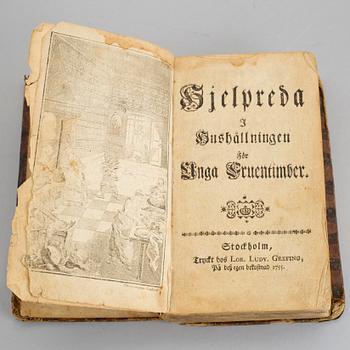 Hjelpreda
I
Hushållningen
För
Unga Fruentimber.
Stockholm,
Tryckt hos Lor. Ludv. Grefing,
På deß egen bekostnad 1755.